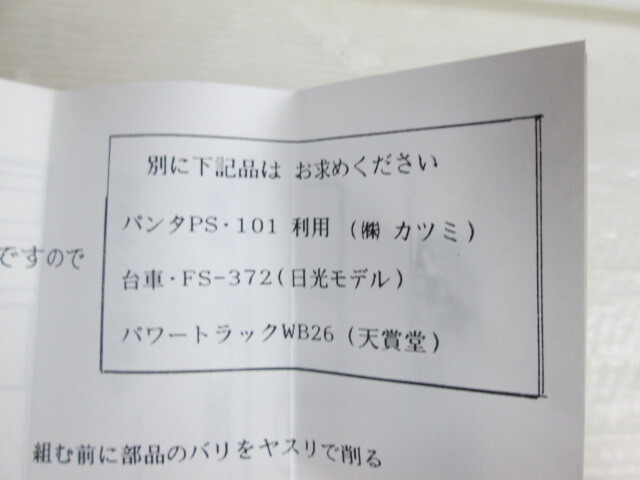 別に下記品は お求めください
パンタPS・101 利用 (㈱ カツミ)
ですので
台車・FS-372(日光モデル)
パワートラックWB26 (天賞堂)
組む前に部品のバリをヤスリで削る